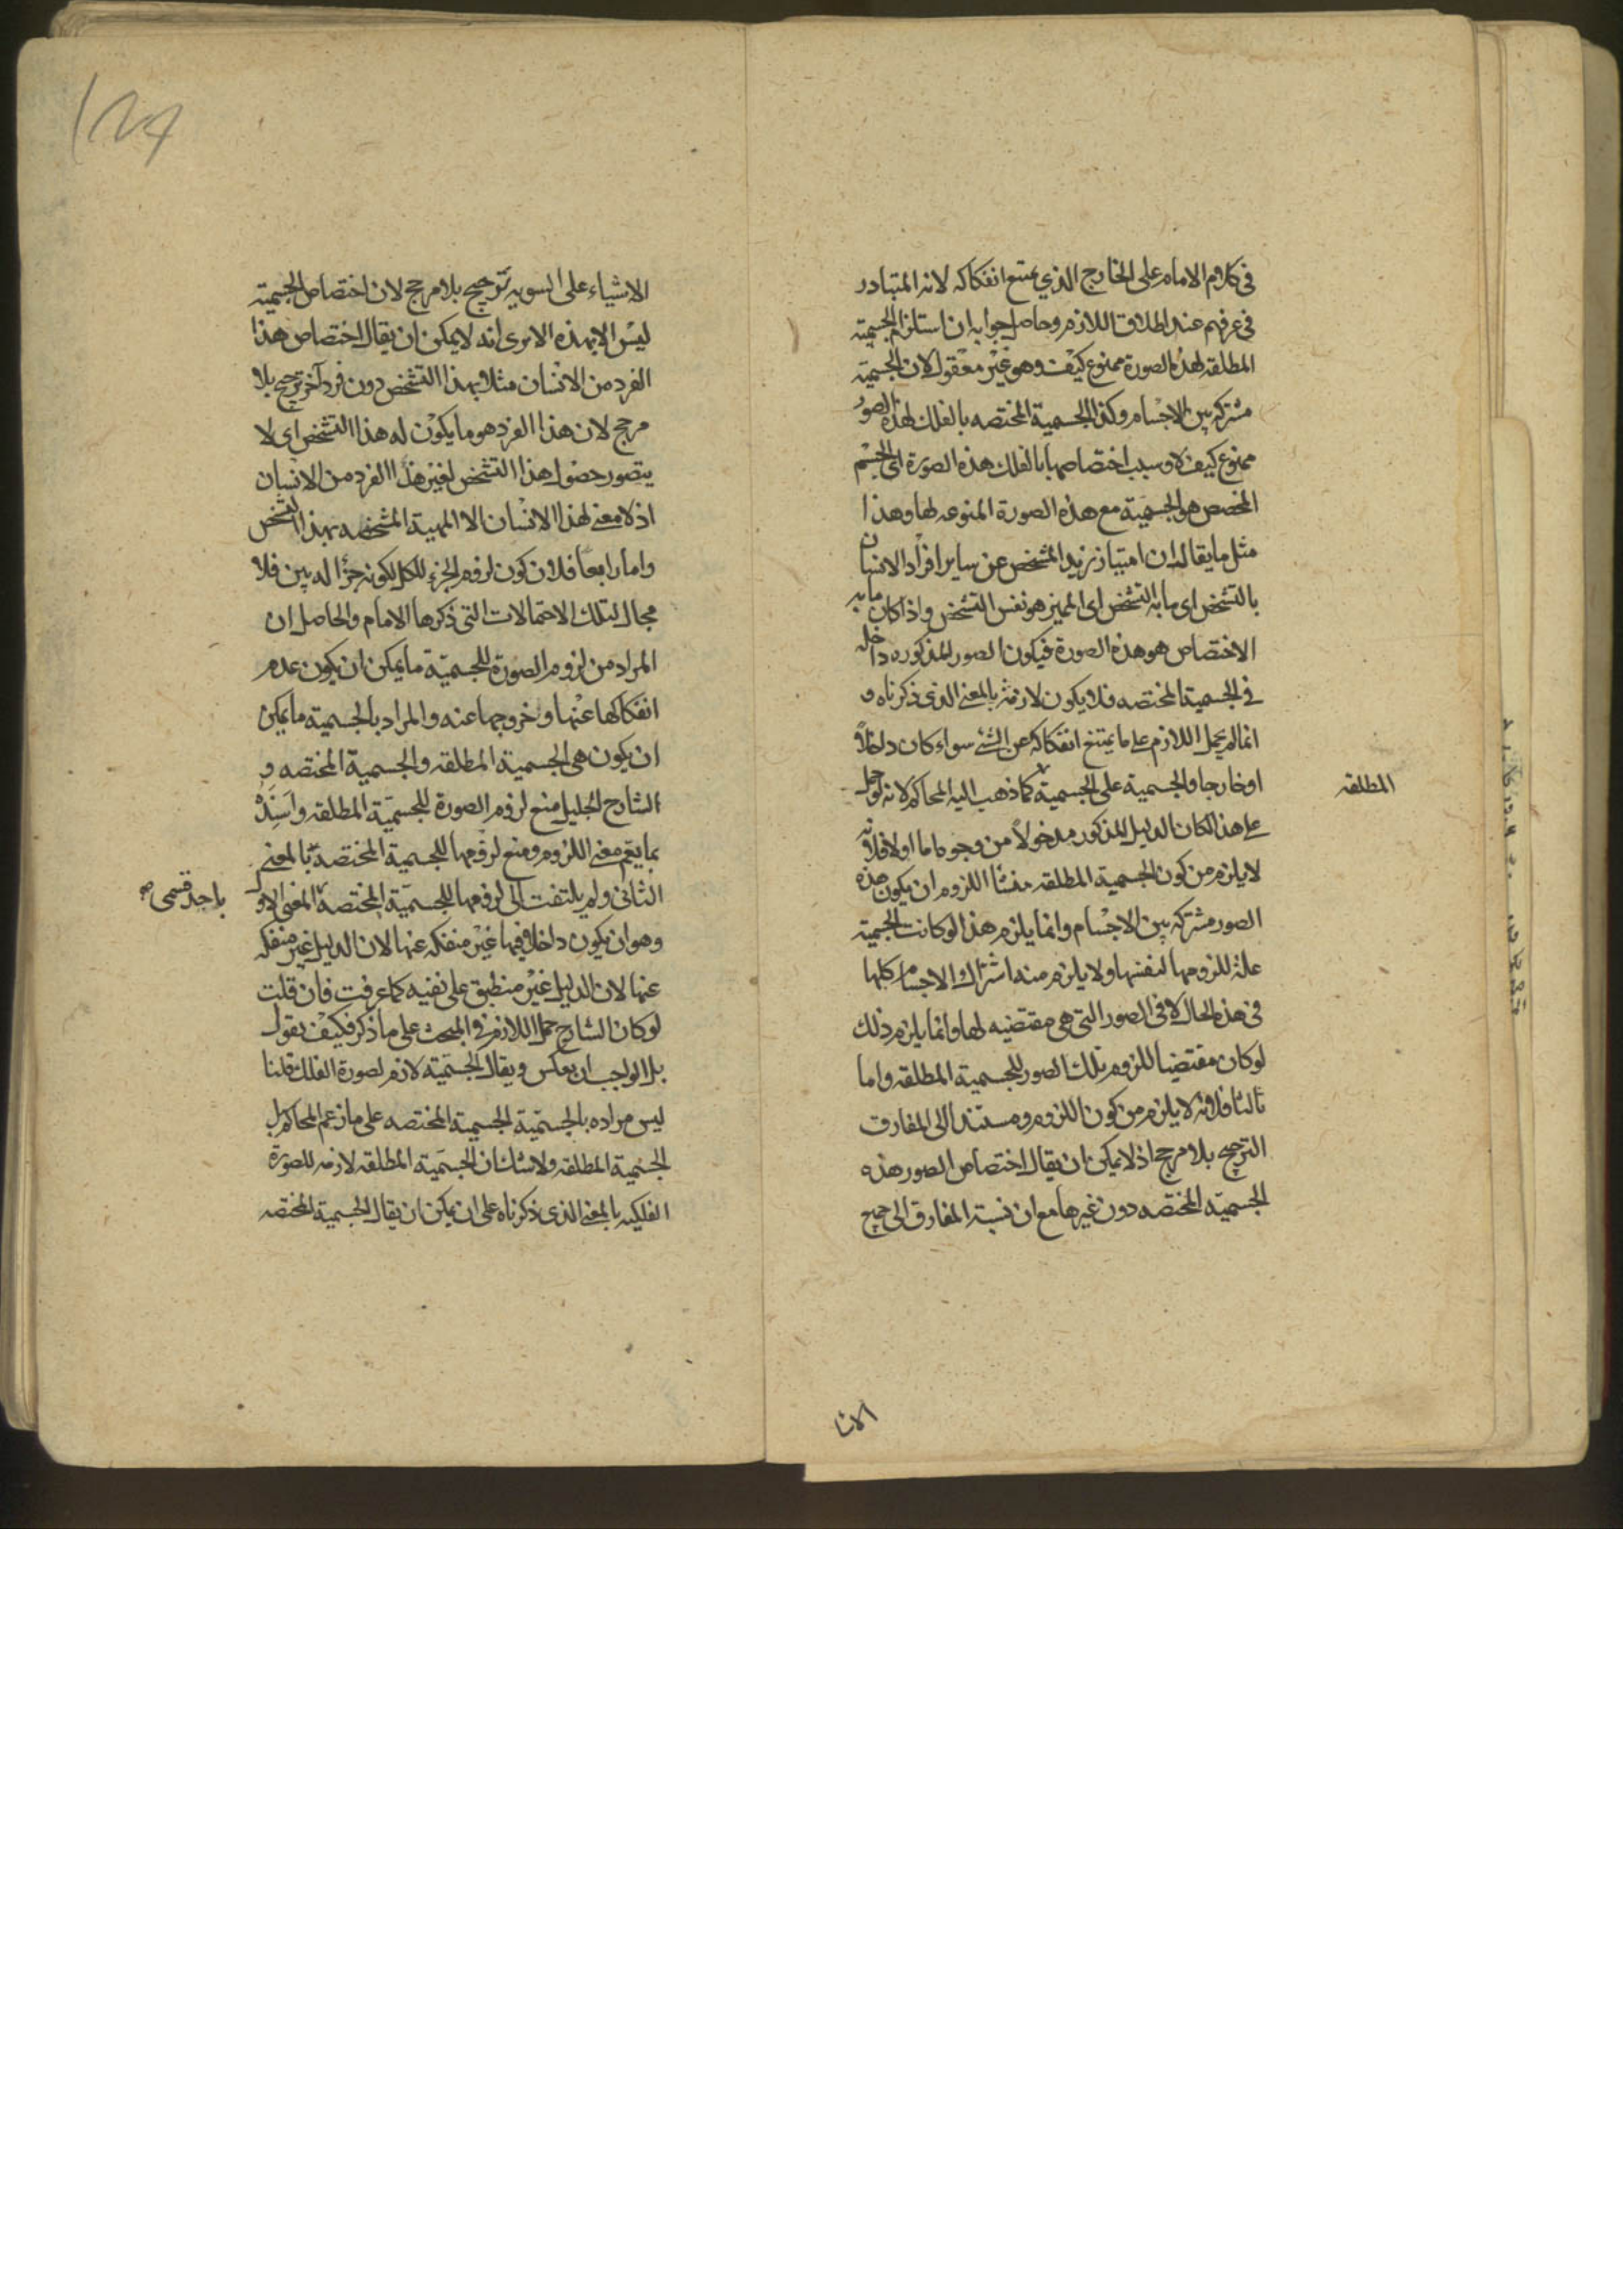 في كلام الامام على الخارج الذي يمتنع انفكاكه لانه المتبادر
في عرفهم عند اطلاق اللازم وحاصل جوابه ان استلزام الجسمية
المطلقه لهذه الصورة ممنوع كيف وهو غير معقول لان الجسمية
مشتركه بين الاجسام وكذا الجسمية المختصه بالفلك لهذه الصور
ممنوع كيف لا وسبب اختصاصها بالفلك هذه الصورة اى الجسم
المخصص هو الجسمية مع هذه الصورة المنوعه لها وهذا
مثل ما يقال ان امتياز زيد المشخص عن ساير افراد الانسان
بالتشخص اى ما به التشخص اى المميز هو نفس التشخص واذا كان ما به
الاختصاص هو هذه الصورة فيكون الصور المذكوره داخله
في الجسمية المختصه فلا يكون لازمة بالمعنى الذى ذكرناه و
انما لم يحمل اللازم على ما يمتنع انفكاكه عن الشئ سواء كان داخلاً
او خارجا والجسمية على الجسمية كما ذهب اليه المحاكم لانه لو حمل
المطلقه
على هذا لكان الدليل المذكور مدخولاً من وجوه اما اولا فلانه
لا يلزم من كون الجسمية المطلقه منشا اللزوم ان يكون هذه
الصور مشتركه بين الاجسام وانما يلزم هذا لو كانت الجسمية
علة للزومها لنفسها ولا يلزم منه اشتراك الاجسام كلها
في هذه الحال لا في الصور التي هي مقتضيه لها وانما يلزم ذلك
لو كان مقتضيا للزوم تلك الصور للجسمية المطلقه واما
ثالثا فلانه لا يلزم من كون اللزوم مستندا الى المفارق
الترجيح بلا مرجح اذ لا يمكن ان يقال اختصاص الصور هذه
الجسمية المختصه دون غيرها مع ان نسبة المفارق الى جميع
الاشيا
الاشياء على السويه ترجيح بلا مرجح لان اختصاص الجسمية
ليس الا بهذه الا يرى انه لا يمكن ان يقال اختصاص هذا
الفرد من الانسان مثلا بهذا التشخص دون فرد آخر ترجيح بلا
مرجح لان هذا الفرد هو ما يكون له هذا التشخص اى لا
يتصور حصول هذا التشخص لغير هذا الفرد من الانسان
اذ لا معنى لهذا الانسان الا المهية المشخصه بهذا التشخص
واما رابعاً فلان كون لزوم الجزء للكل لكونه جزًا له بين فلا
مجال لتلك الاحتمالات التي ذكرها الامام والحاصل ان
المراد من لزوم الصورة للجسمية ما يمكن ان يكون عدم
انفكاكها عنها وخروجها عنه والمراد بالجسمية ما يمكن
ان يكون هي الجسمية المطلقه والجسمية المختصه و
الشارح الجليل منع لزوم الصورة للجسمية المطلقه واسنده
بما يعم معنى اللزوم ومنع لزومها للجسمية المختصة بالمعنى
الثانى ولم يلتفت الى لزومها للجسمية المختصة المعنى الاول
باحد قسمى صح
وهو ان يكون داخلا فيها غير منفكه عنها لان الدليل غير منفكه
عنها لان الدليل غير منطبق على نفيه كما عرفت فان قلت
لو كان الشارح حمل اللازم في المبحث على ما ذكر فكيف يقول
بل الواجب ان يعكس ويقال الجسمية لازم لصورة الفلك قلنا
ليس مراده بالجسمية الجسمية المختصه على ما زعم المحاكم بل
الجسمية المطلقه ولا شك ان الجسمية المطلقه لازمه للصورة
الفلكيه بالمعنى الذى ذكرناه على ان يمكن ان يقال الجسمية المختصه